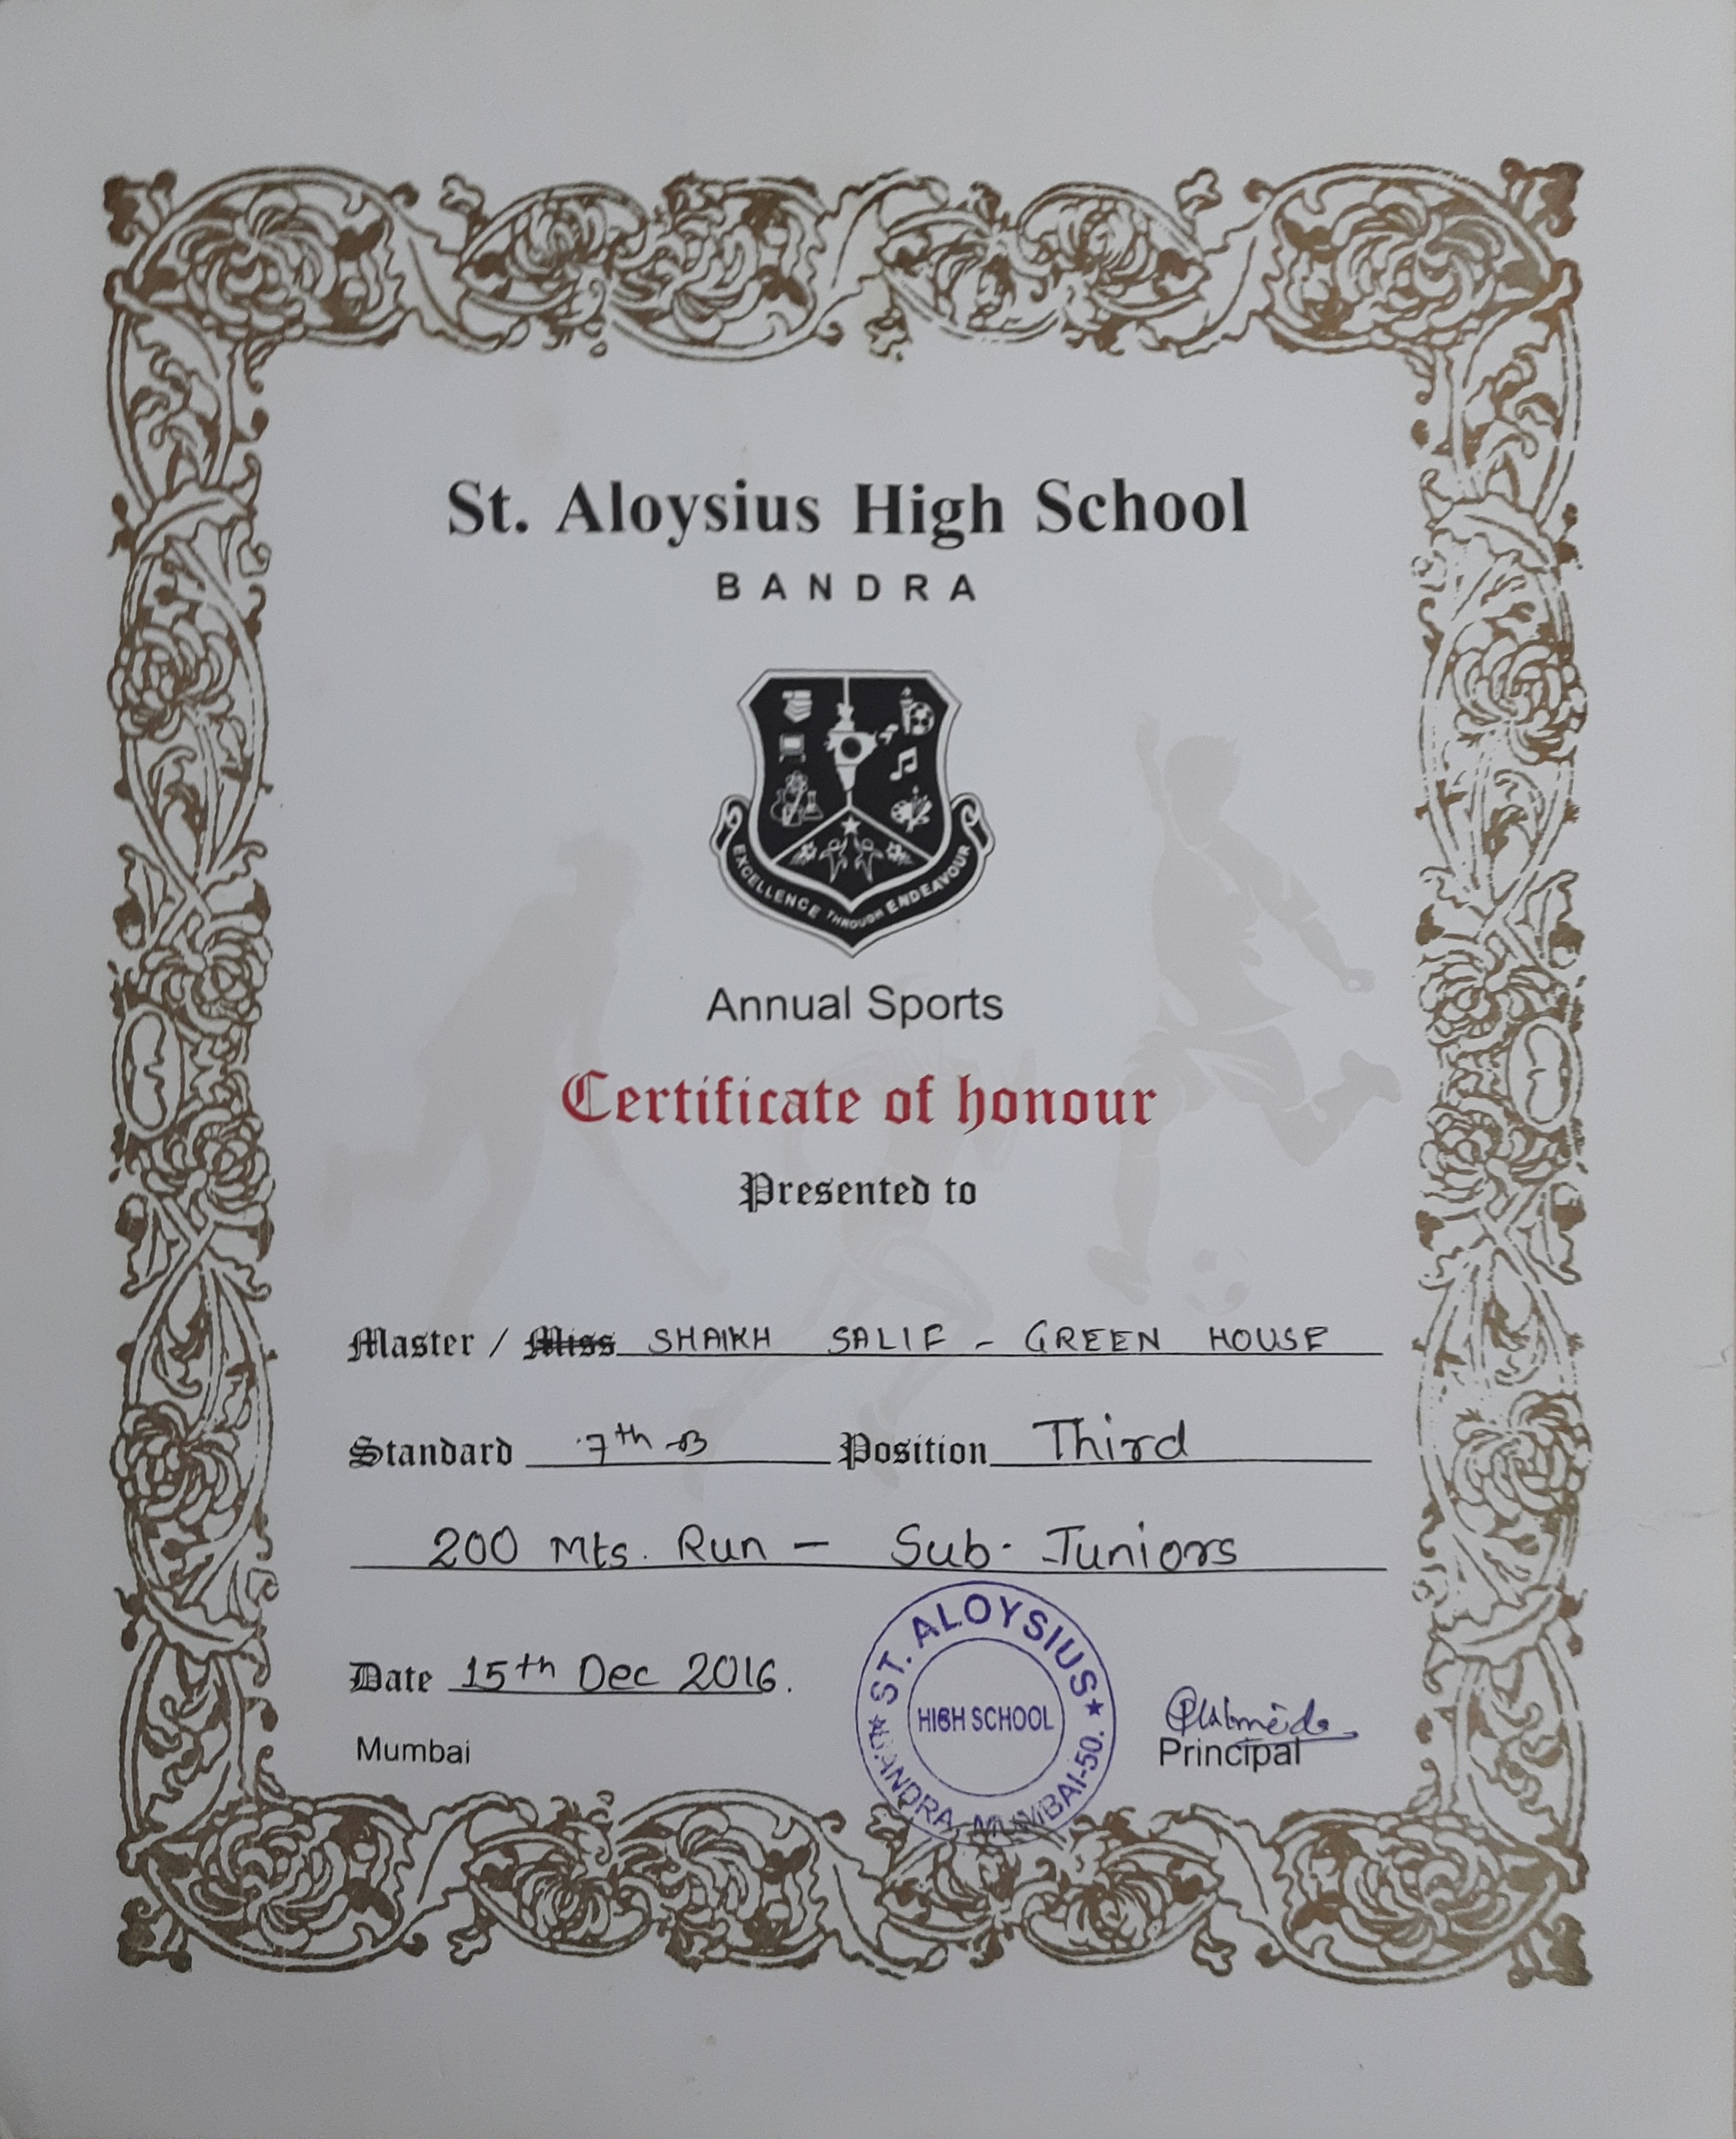 St. Aloysius High School
BANDRA
EXCELLENCE THROUGH ENDEAVOUR
Annual Sports
Certificate of honour
Presented to
Master / Miss SHAIKH SALIF - GREEN HOUSE
Standard 7th B Position Third
200 Mts. Run - Sub-Juniors
Date 15th Dec 2016.
Mumbai
ST. ALOYSIUS
HIGH SCHOOL
BANDRA, MUMBAI-50.
Principal